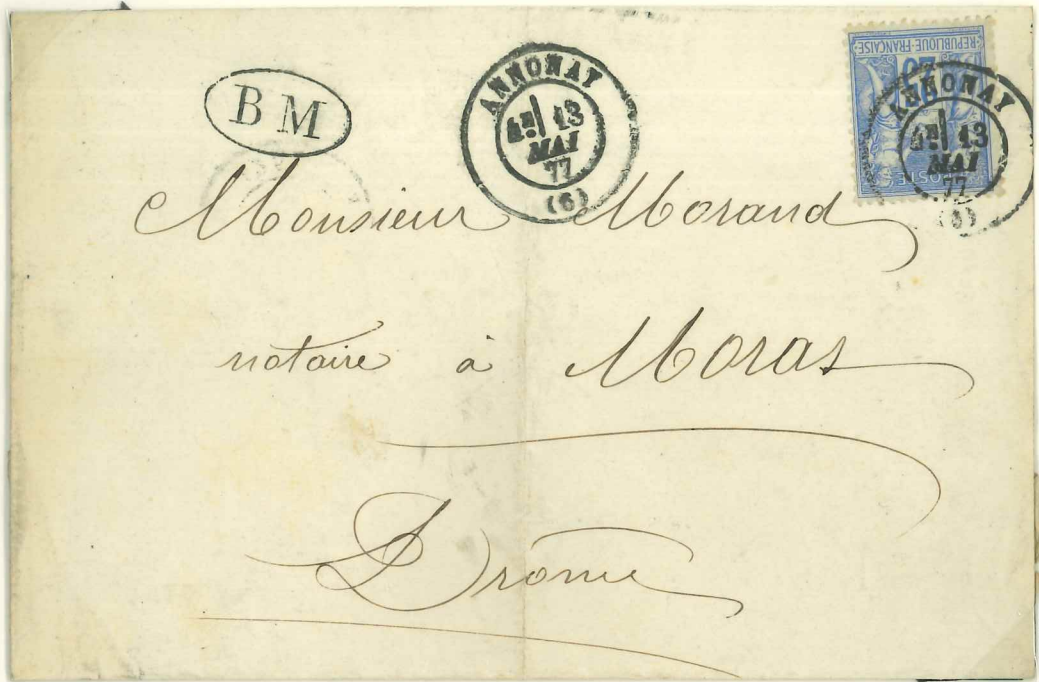 B M
ANNONAY
4E 13
MAI
77
(6)
REPUBLIQUE-FRANÇAISE
25
POSTE
ANNONAY
4E 13
MAI
77
Monsieur Morand
notaire à Moras
Drôme